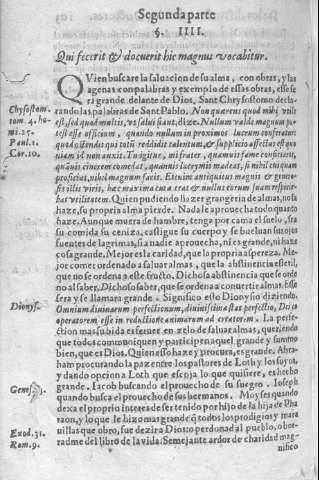 Segunda parte
§. IIII.
Qui fecerit & docuerit hic magnus vocabitur.
Quien buscare la saluacion de su alma, con obras, y las
agenas con palabras y exemplo de essas obras, esse se
ra grande delante de Dios. Sant Chrysostomo decla-
Chrysostom.
rando las palabras de Sant Pablo. Non quærens quod mihi vtile
tom. 4. ho-
est, sed quod multis, vt salui fiant, dize. Nullum valde magnum po-
mi. 25.
test esse officium, quando nullum in proximos lucrum conferatur
Paul. 1.
quod ostendit qui totū reddidit talentum, & supplicio affectus est quo
Cor. 10.
niam id non auxit. Tu igitur, mi frater, quamuis fame conficiaris,
quāuis cinerem comedas, quamuis iugeris madeas, si nihil cuiquam
profueris, nihil magnum facis. Etenim antiquitus magnis & genero
sis illis viris, hac maxima erat cura
hat vtilitatem. Quien pudiendo hazer grangeria de almas, no la
haze, su propia alma pierde. Nada le aprouecha todo quanto
haze. Aunque muera de hambre, tenga por cama el suelo, sea
su comida su ceniza, castigue su cuerpo y se bueluan sus ojos
fuentes de lagrimas, si a nadie aprouecha, ni es grande, ni haze
cosa grande. Mejor es la caridad, que la propria aspereza. Me-
jor comer ordenado a saluar almas, que la abstinencia
que no se ordena a este fructo. Dichosa abstinencia que se orde
no al saber. Dichoso saber, que se ordena a conuertir almas. Esse
sera y se llamara grande. Significo esto Dionysio diziendo.
Dionys.
Omnium diuinarum perfectionum, diuinissimum est perfectio, Dei co
operatorem esse in reductione animarum ad creatorem. La perfe-
ction mas subida es feruer en zelo de saluar almas, queriendo
que todos communiquen y participen aquel grande y summo
bien, que es Dios. Quien esso haze y procura, es grande. Abra-
ham procurando la paz entre los pastores de Loth y los suyos,
y dando opcion a Loth que escoja lo que quisiere, es hecho
Genes. 13.
grande. Iacob buscando el prouecho de su suegro. Ioseph
quando busca el prouecho de sus hermanos. Moyses quando
dexa el proprio interes de ser tenido por hijo de la hija de Pha
raon, y lo que le hizo mas grande q̃ todos los prodigios y mara
Exod. 31.
uillas que obro, fue dezir a Dios to perdonad al pueblo, o bor-
Rom. 9.
radme del libro de la vida. Semejante ardor de charidad mag-
nifico